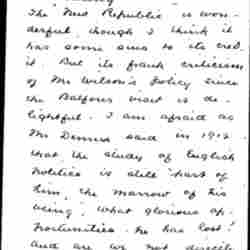 The New Republic is won-
derful, though I think it
has some sins to its cred
it. But its frank criticism
of Mr Wilson's policy since
the Balfour visit is de-
lightful. I am afraid as
Mr Dennis said in 1912
that the study of English
Politics is still part of
him, the marrow of his
being. What glorious op-
portunities he has lost!
And are we not directly